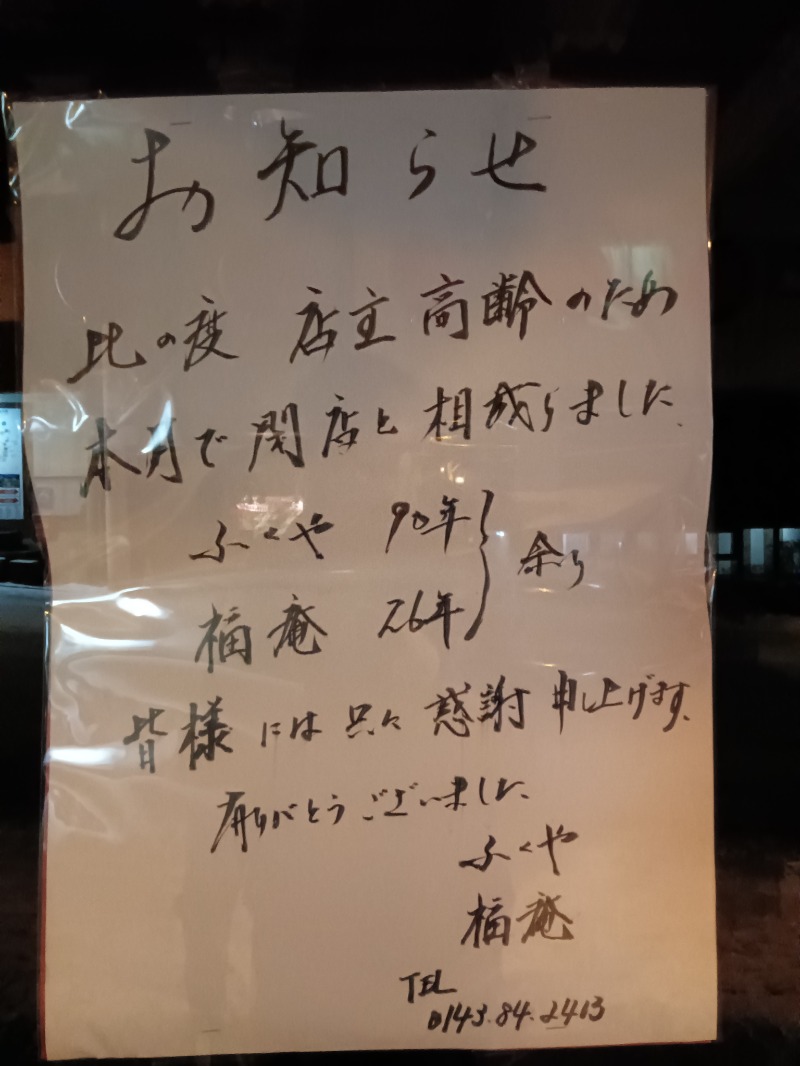 お知らせ
比の度 店主高齢のため
本月で閉店と相成りました。
ふくや 90年
福庵 26年
余り
皆様には只々感謝申し上げます。
有りがとうございました。
ふくや
福庵
TEL
0143.84.2413